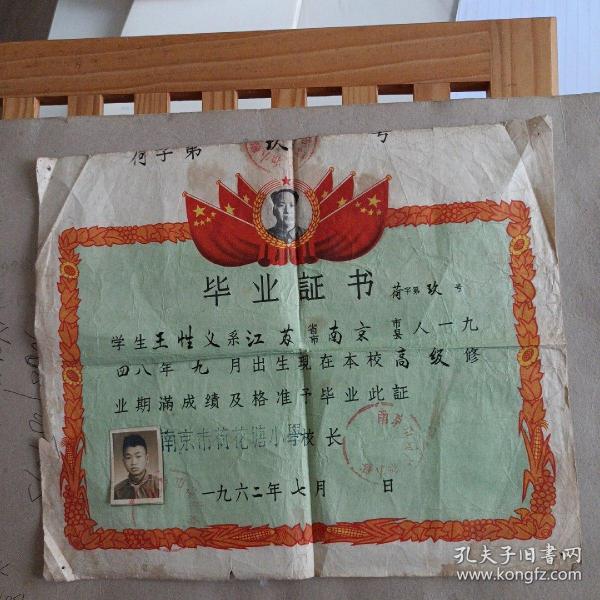 荷字第 玖 号
毕业証书 荷字第 玖 号
学生王性义系江苏省市南京市县人一九
四八年九月出生现在本校高级修
业期满成绩及格准予毕业此証
南京市荷花塘小学校长
一九六二年七月 日
孔夫子旧书网
www.kongfz.com